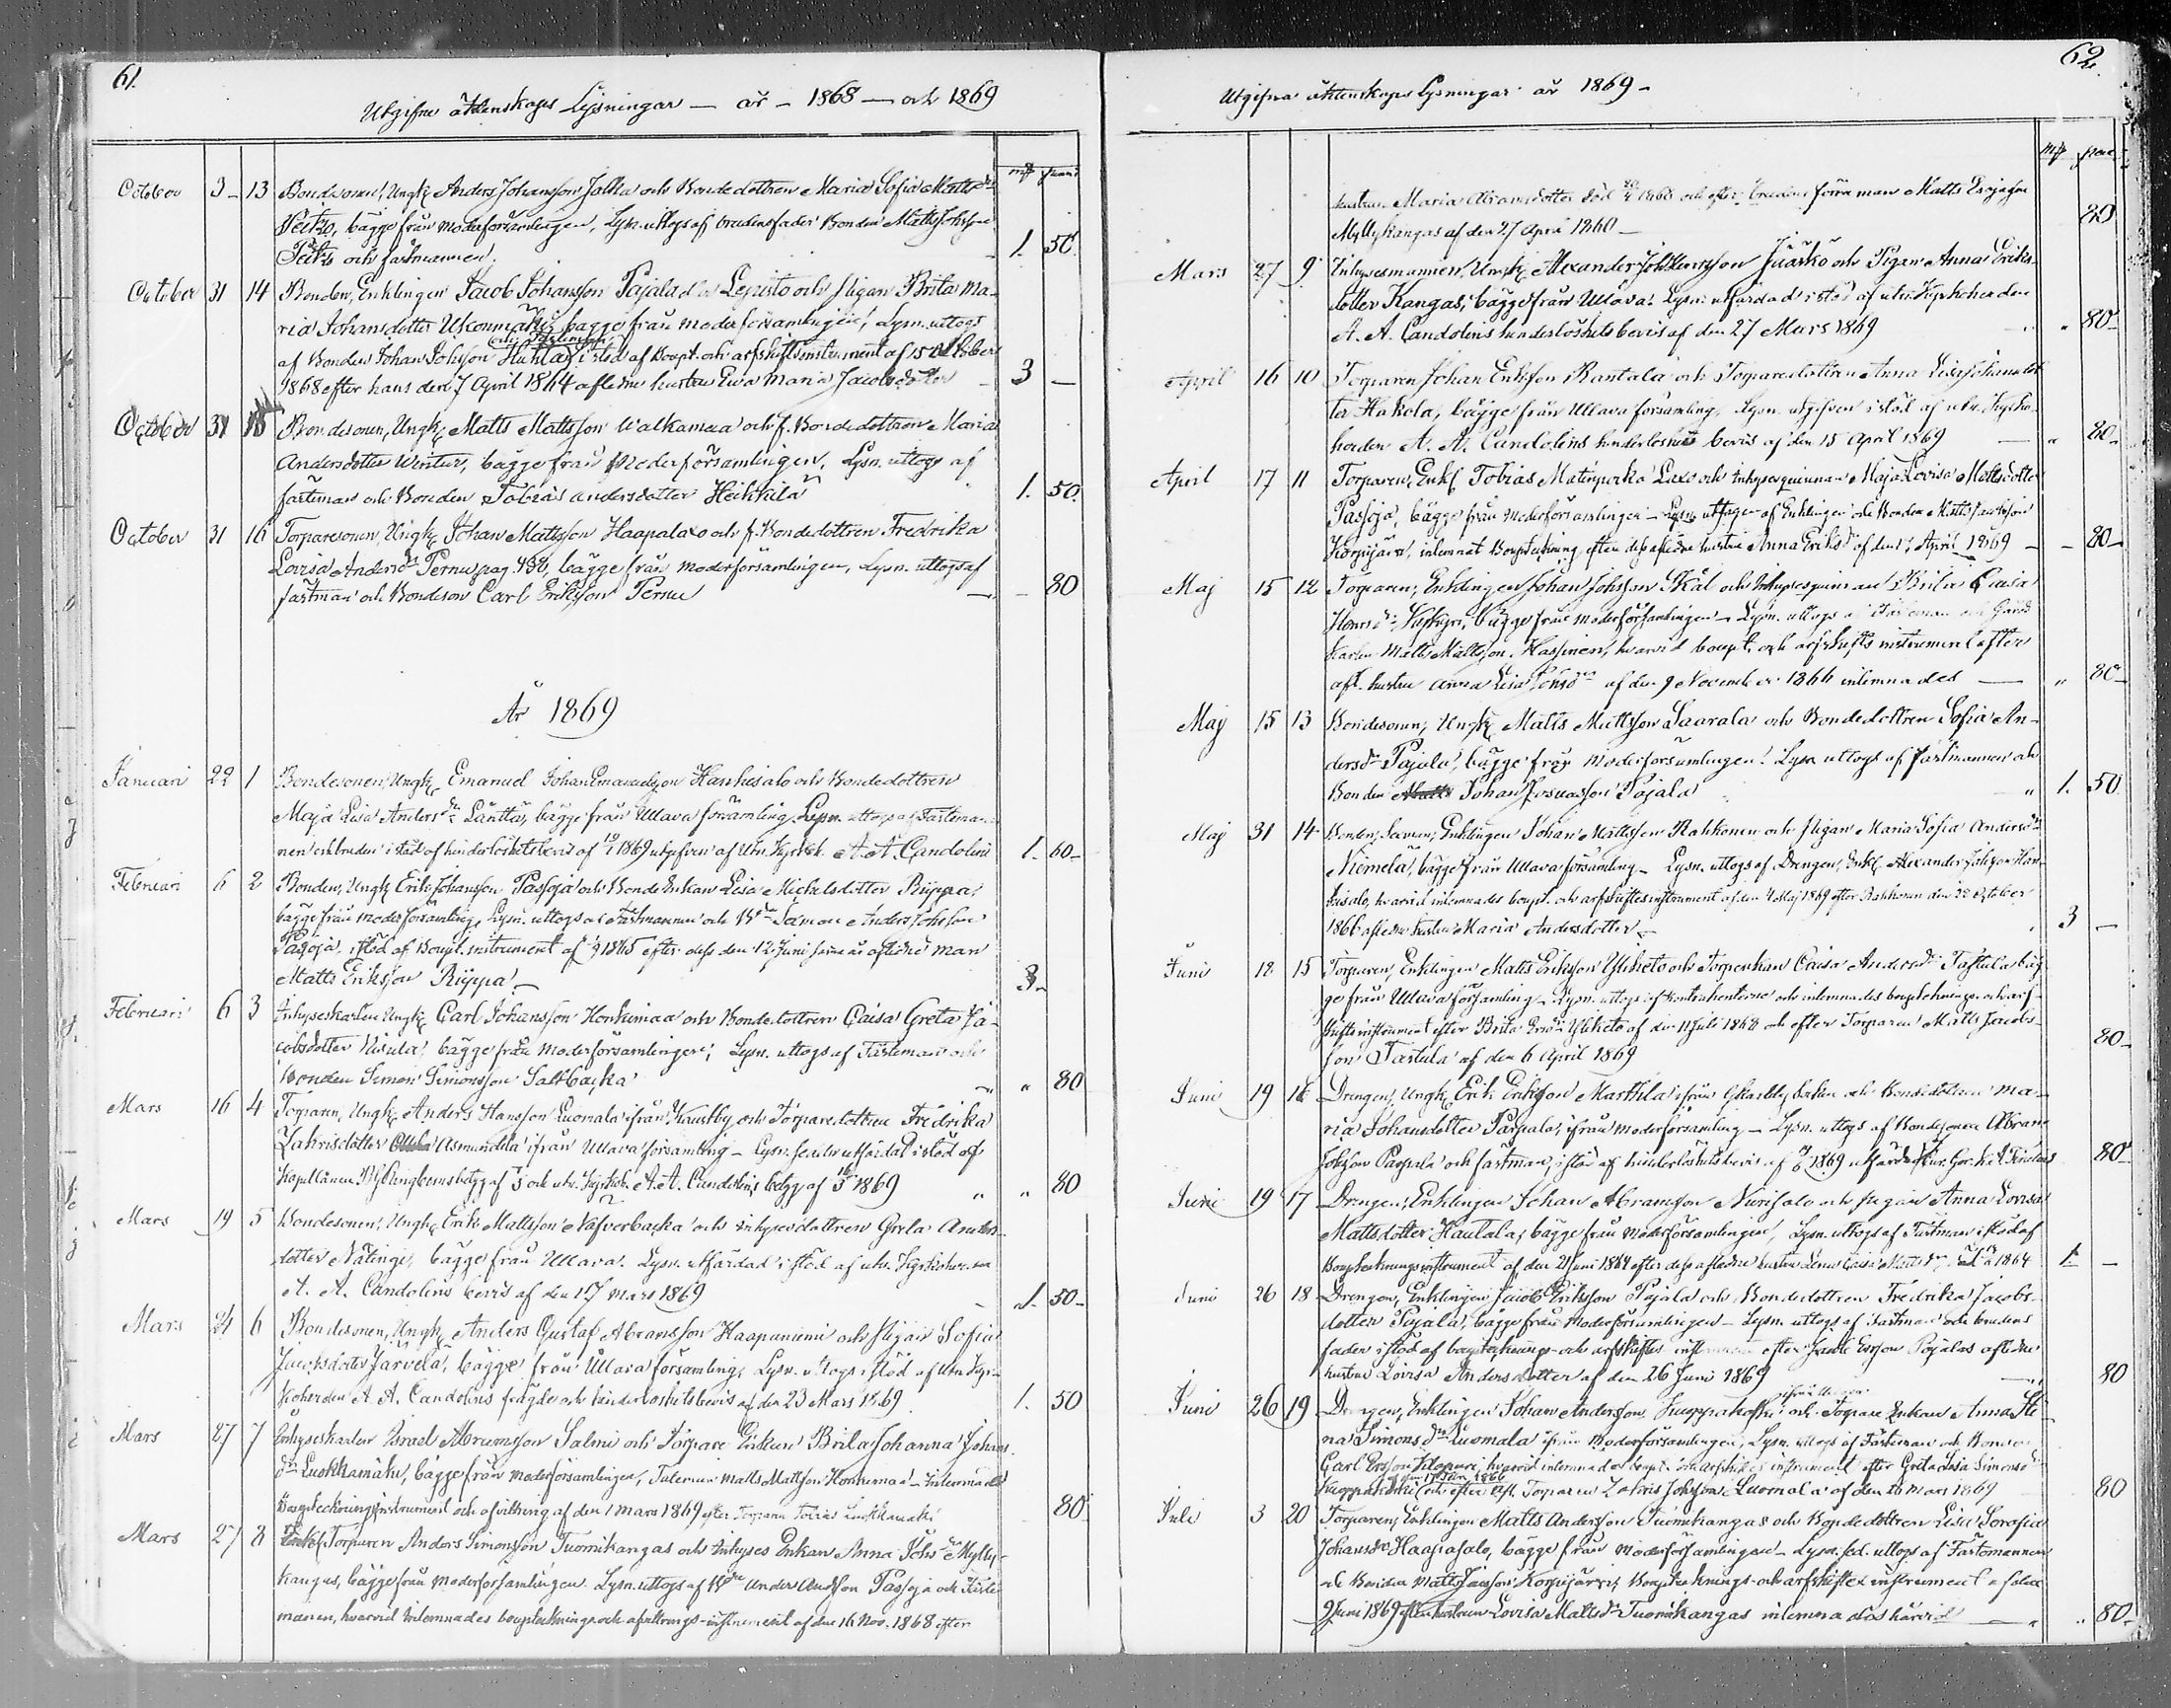 61.
Utgifne äktenskaps Lysningar — år — 1868 — och 1869
mk penni
October 3 13 Bondesonen, Ungk. Anders Johansson Jolka och Bondedottren Maria Sofia Mattsdr
bägge från moderförsamlingen, Lysn. uttogs af brudens fader Bonden Matts Johsson
och fästmannen. 1. 50.
October 31 14 Bonden, Enklingen Jacob Johansson Pajala och Pigan Brita Ma-
ria Johansdotter bägge från moderförsamlingen, Lysn. uttogs
af Bonden Johan Johsson Huhta i stöd af Boupt. och arfskiftsinstrument af 15 October
1868 efter hans den 7 April 1864 aflidne hustru Ewa Maria Jacobsdotter — 3 —
October 31 15 Bondesonen, Ungk. Matts Mattsson Walkamaa och f. Bondedottren Maria
Andersdotter Wintur, bägge från Moderförsamlingen. Lysn. uttogs af
fästman och Bonden Tobias Andersdotter Heikkilä 1. 50.
October 31 16 Torparesonen, Ungk. Johan Mattsson Haapalaxo och f. Bondedottren Fredrika
Lovisa Andersdr Pernu pag. 430, bägge från moderförsamlingen, Lysn. uttogs af
fästman och Bondeson Carl Eriksson Pernu — 80
År 1869
Januari 22 1 Bondesonen, Ungk. Emanuel Johan Emanuelsson Hanhisalo och Bondedottren
Maja Lisa Andersdr Läntta, bägge från Ullava församling. Lysn. uttogs af Fästeman-
nen och bruden i stöd af hinderlöshetsbevis af 19/1 1869 utgifven af Utn. Kyrkoh. A. A. Candolin 1. 60
Februari 6 2 Bonden, Ungk. Erik Johansson Passoja och Bonde Enkan Lisa Michelsdotter Riippa,
bägge från moderförsamling, Lysn. uttogs af Fästmannen och Anders Johsson
Pasoja, i stöd af Boupt. instrument af 1865 efter dess den 12 Juni samma år aflidne man
Matts Eriksson Riippa. — 3. —
Februari 6 3 Inhyseskarlen Ungk. Carl Johansson Honkimaa och Bondedottren Caisa Greta Ja-
cobsdotter Nisula, bägge från moderförsamlingen; Lysn. uttogs af Fästeman och
Bonden Simon Simonsson Saltbacka „ 80
Mars 16 4 Torparen, Ungk. Anders Hansson Luomala ifrån Kaustby och Torparedottren Fredrika
Zakrisdotter Asmundila ifrån Ullava församling — Lysn. sedeln utfärdad i stöd af
Kapellanen betyg af och utn. Kyrkoh. A. A. Candolins betyg af 1869 „ „ 80
Mars 19 5 Bondesonen, Ungk. Erik Mattsson Näfverbacka och Inhysesdottren Greta Anders-
dotter Nätingi, bägge från Ullava. Lysn. utfärdad i stöd af utn. Kyrkoherden
A. A. Candolins bevis af den 17 Mars 1869 1. 50
Mars 24 6 Bondesonen, Ungk. Anders Gustaf Abramsson Haapaniemi och Pigan Sofia
Jacobsdotter Järvelä, bägge från Ullava församling, Lysn. uttogs i stöd af Utn. Kyr-
koherden A. A. Candolins frägde och hinderlöshetsbevis af den 23 Mars 1869. 1. 50
Mars 27 7 Inhyseskarlen Israel Abramsson Salmi och Torpare Enkan Brita Johanna Johans
dr Luokkamäki, bägge från moderförsamlingen, Matts Mattsson Honkimaa — Inlemnades
Bouptecknings instrument och afvittring af den 1 mars 1869 efter Torparen Tobias Luokkamäki 80
Mars 27 8 Torparen Anders Simonsson Tuomikangas och Inhyses Enkan Anna Johsdr Mylly-
kangas, bägge från moderförsamlingen. Lysn. uttogs af Anders Andsson Passoja och Fäste-
manen, hvarvid inlemnades bouptecknings och afvittrings-instrument af den 16 Nov. 1868 efter
62.
Utgifna äktenskaps Lysningar år 1869 —
mk penni
hustrun Maria Abramsdotter död 1868 och efter brudens förra man Matts Ersson
Myllykangas af den 27 April 1860 — 80
Mars 27 9 Inhysesmannen, Ungk. Alexander Jääskö och Pigan Anna Eriks-
dotter Kangas, bägge från Ullava. Lysn. utfärdad i stöd af utn. Kyrkoherden
A. A. Candolins hinderlöshets bevis af den 27 Mars 1869 „ 80
April 16 10 Torparen Johan Eriksson Rantala och Torparedottren Anna Lisa Johansdot
ter Hakola, bägge från Ullava församling. Lysn. utgifven i stöd af utn. Kyrko-
herden A. A. Candolins hinderlöshets bevis af den 15 April 1869 — „ 80
April 17 11 Torparen, Enkl. Tobias Laxo och Inhysesqvinnan Maja Lovisa Mattsdotter
Passoja, bägge från moderförsamlingen — Lysn. uttagen af Enklingen och Bonden Matts Jacobsson
Korpijärvi, inlemnat Bouptekning efter dess aflidne hustru Anna Eriksdr af den April 1869 — 80
Maj 15 12 Torparen, Enklingen Johan Johsson Skål och Inhysesqvinnan Brita Caisa
Henrsdr bägge från moderförsamlingen. Lysn. uttogs af Fästeman och Gårds
karlen Matts Mattsson Hassinen, hvarvid boupt. och arfskifts instrument efter
afl. hustru Anna Lisa af den 9 November 1866 inlemnades — „ 80
Maj 15 13 Bondesonen, Ungk. Matts Mattsson Saarala och Bondedottren Sofia An-
dersdr Pajala, bägge från Moderförsamlingen. Lysn. uttogs af fästmannen och
Bonden Johan Josuasson Pajala „ 1. 50
Maj 31 14 Bonden, Enklingen Johan Mattsson Rahkonen och Pigan Maria Sofia Andersdr
Niemelä, bägge från Ullava församling — Lysn. uttogs af Drengen, Enkl. Alexander Johsson Han-
hisalo, hvarvid inlemnades boupt. och arfskiftesinstrument af den 4 Maj 1869 efter Rahkonens den 22 October
1866 aflidne hustru Maria Andersdotter. — 3 —
Juni 12 15 Torparen, Enklingen Matts Eriksson Yliheto och Torpenkan Caisa Andersdr Tastula, bäg
ge från Ullava församling — Lysn. uttogs af Kontrahenterne och inlemnades bouptecknings och arf-
skiftesinstrument efter Brita Yliheto af den 11 Juli 1868 och efter Torparen Matts Jacobs-
son Tastula af den 6 April 1869 80
Juni 19 16 Drengen, Ungk. Erik Eriksson Marttila ifrån och Bondedottren Ma-
ria Johansdotter Parpala, ifrån moderförsamling — Lysn. uttogs af Bondesonen Abram
Johsson Parpala och fästman, i stöd af hinderlöshetsbevis af 1869 utfärdadt 80
Juni 19 17 Drengen, Enklingen Johan Abramsson Nurisalo och pigan Anna Lovisa
Mattsdotter Hautala, bägge från moderförsamlingen, Lysn. uttogs af Fästman i stöd af
Bouptecknings instrument af den 21 Juni 1864 efter dess aflidne hustru Caisa Mattsdr 1864 1. —
Juni 26 18 Drengen, Enklingen Jacob Eriksson Pajala och Bondedottren Fredrika Jacobs-
dotter Pajala, bägge från Moderförsamlingen — Lysn. uttogs af Fästman och brudens
fader i stöd af bouptecknings- och arfskiftes instrument efter Jacob Ersson Pajalas aflidne
hustru Lovisa Andersdotter af den 26 Juni 1869 80
Juni 26 19 Drengen, Enklingen Johan Andersson Kuoppakoski och Torpare Enkan Anna Ste
na Simonsdr Luomala ifrån moderförsamlingen, Lysn. uttogs af Fästeman och Bonden
Carl Ersson hvarvid inlemnades boupt. och arfskiftes instrument efter Greta Lisa Simonsdr
af den 17 Jan. 1866
Kuoppakoski och efter afl. Torparen Zakris Johsson Luomala af den 16 mars 1869 80
Juli 3 20 Torparen, Enklingen Matts Andersson Tuomikangas och Bondedottren Lisa Sorofia
Johansdr Haapasalo, bägge från moderförsamlingen — Lysn. sed. uttogs af Fästemannen
och Bonden Matts Jansson Korpijärvi, Bouptecknings och arfskiftes instrument
9 Juni 1869 efter hustrun Lovisa Mattsdr Tuomikangas inlemnades härvid — „ 80